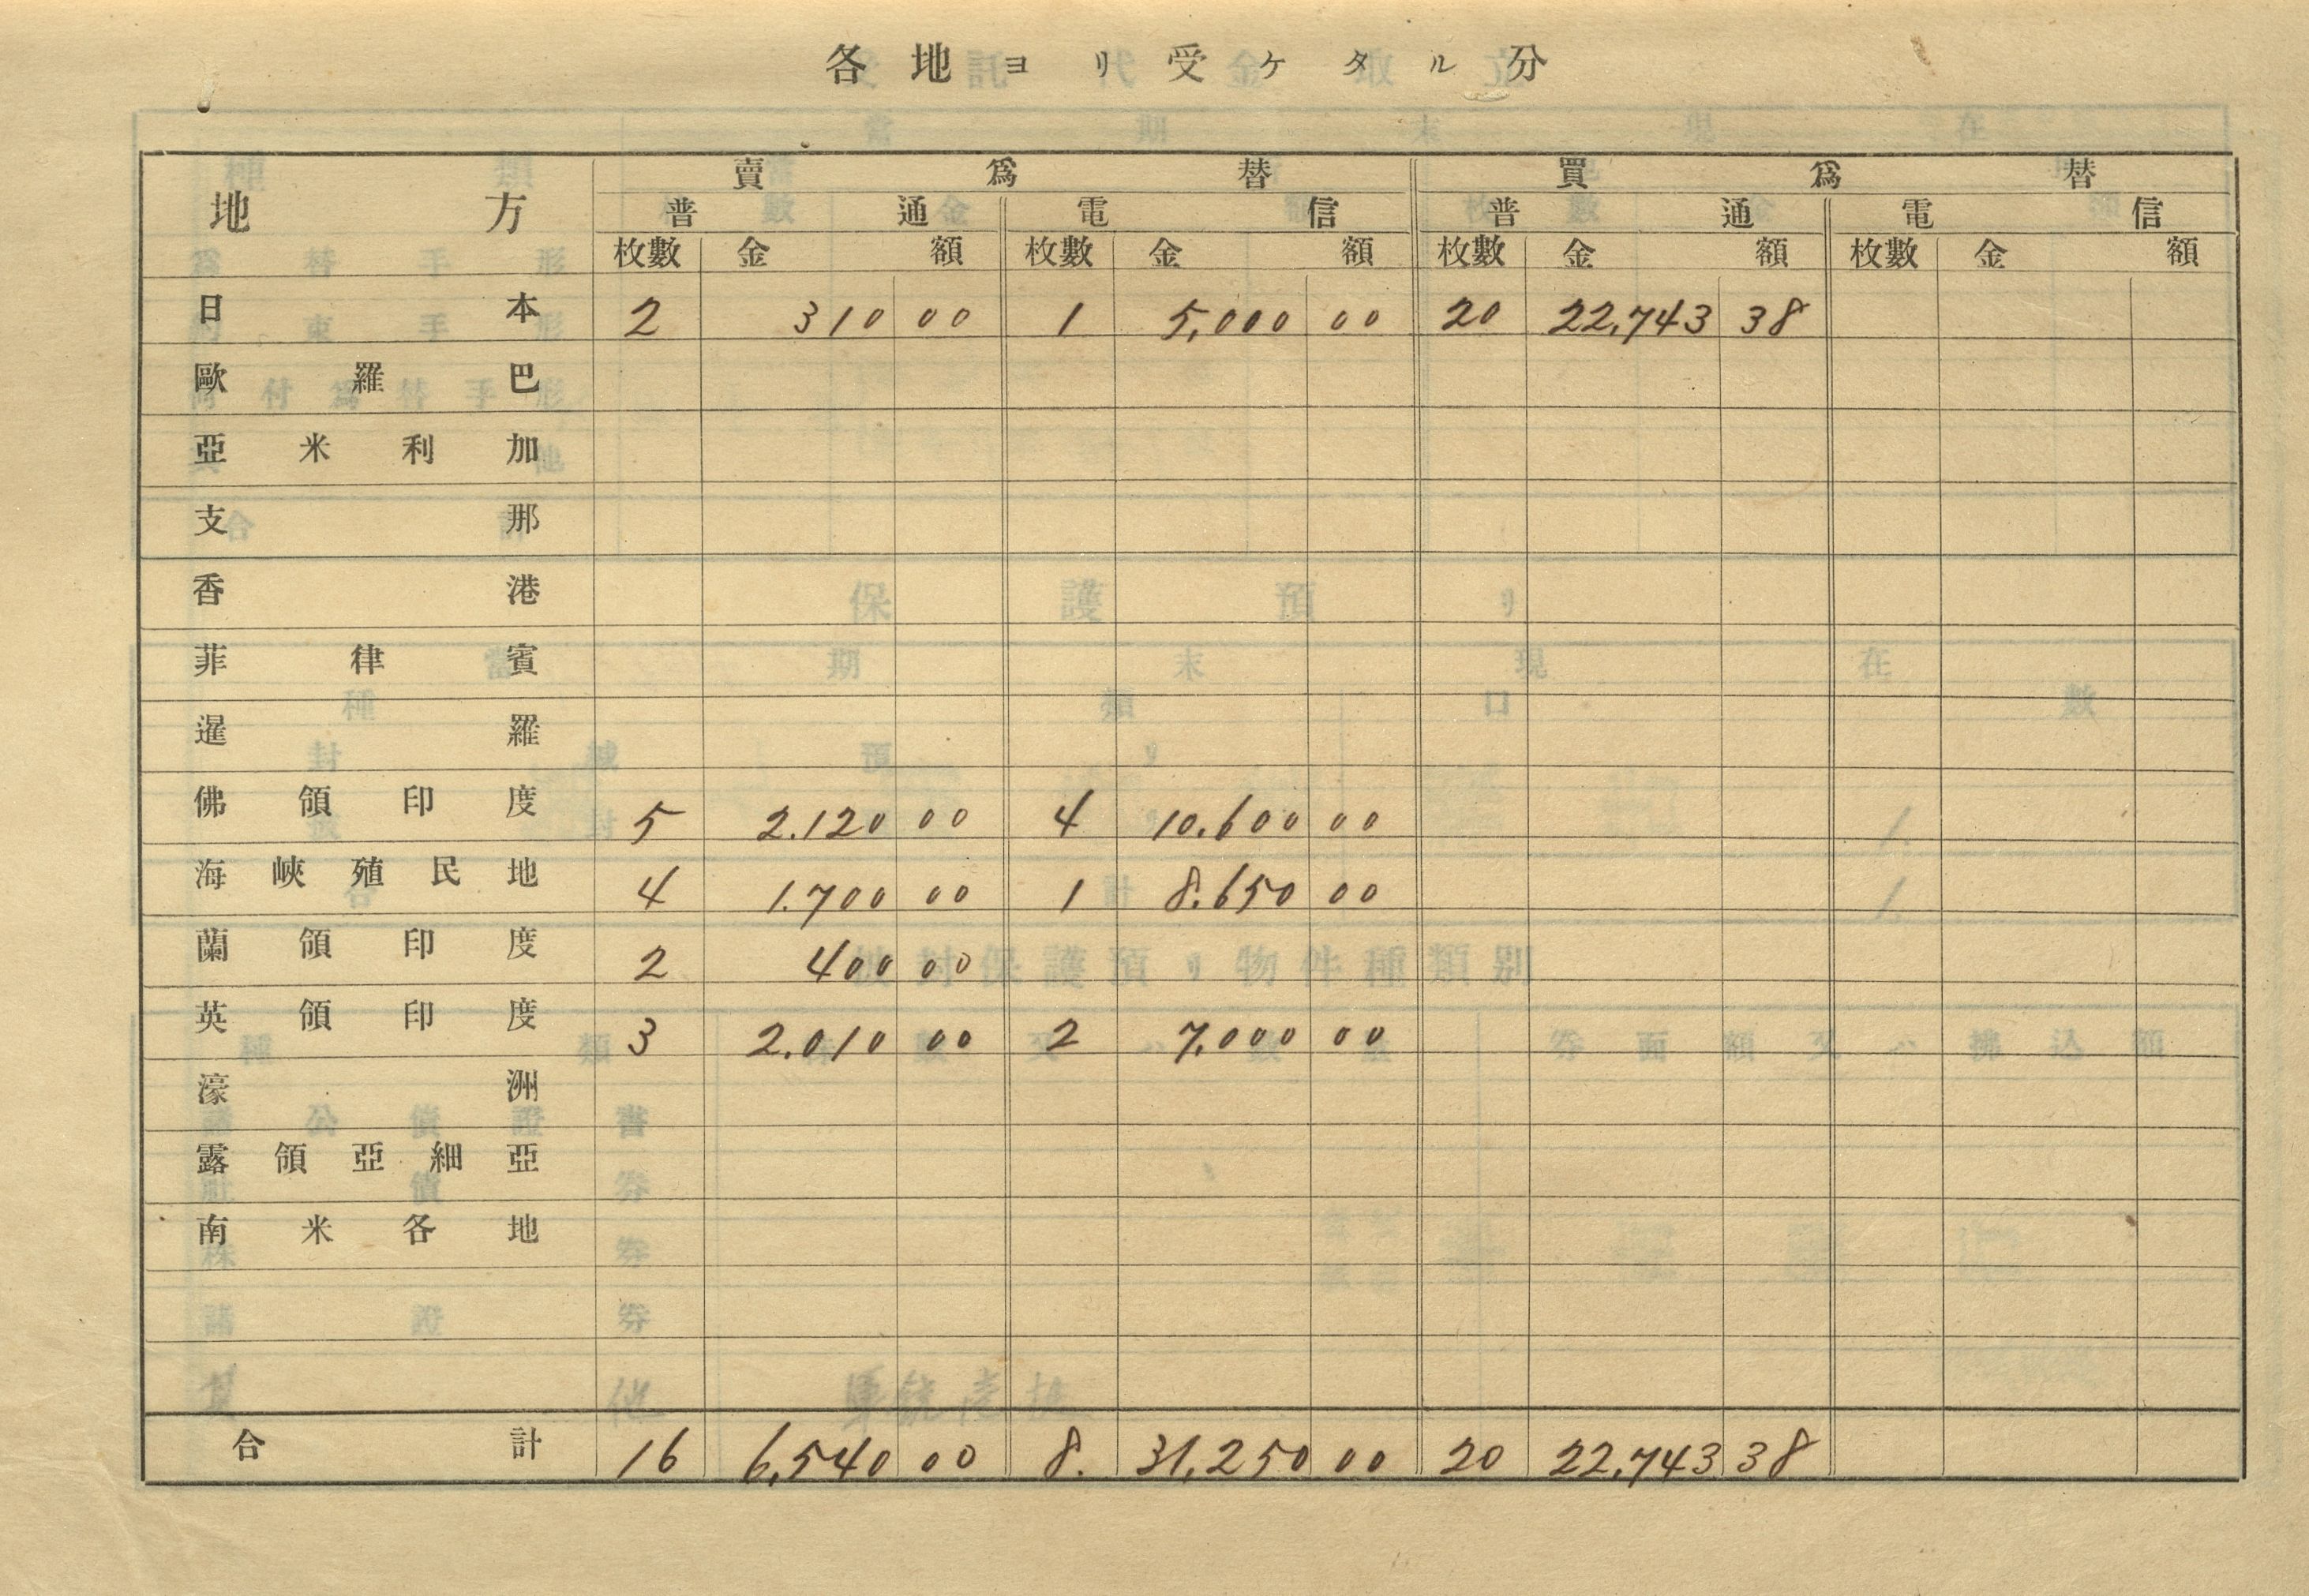 各地ヨリ受ケタル分
地方 賣爲替 買爲替
普通 電信 普通 電信
枚數 金額 枚數 金額 枚數 金額 枚數 金額
日本 2 310 00 1 5,000 00 20 22,743 38
歐羅巴
亞米利加
支那
香港
菲律賓
暹羅
佛領印度 5 2.120 00 4 10.600 00
海峽殖民地 4 1.700 00 1 8.650 00
蘭領印度 2 400 00
英領印度 3 2.010 00 2 7.000 00
濠洲
露領亞細亞
南米各地
合計 16 6,540 00 8. 31,250 00 20 22,743 38